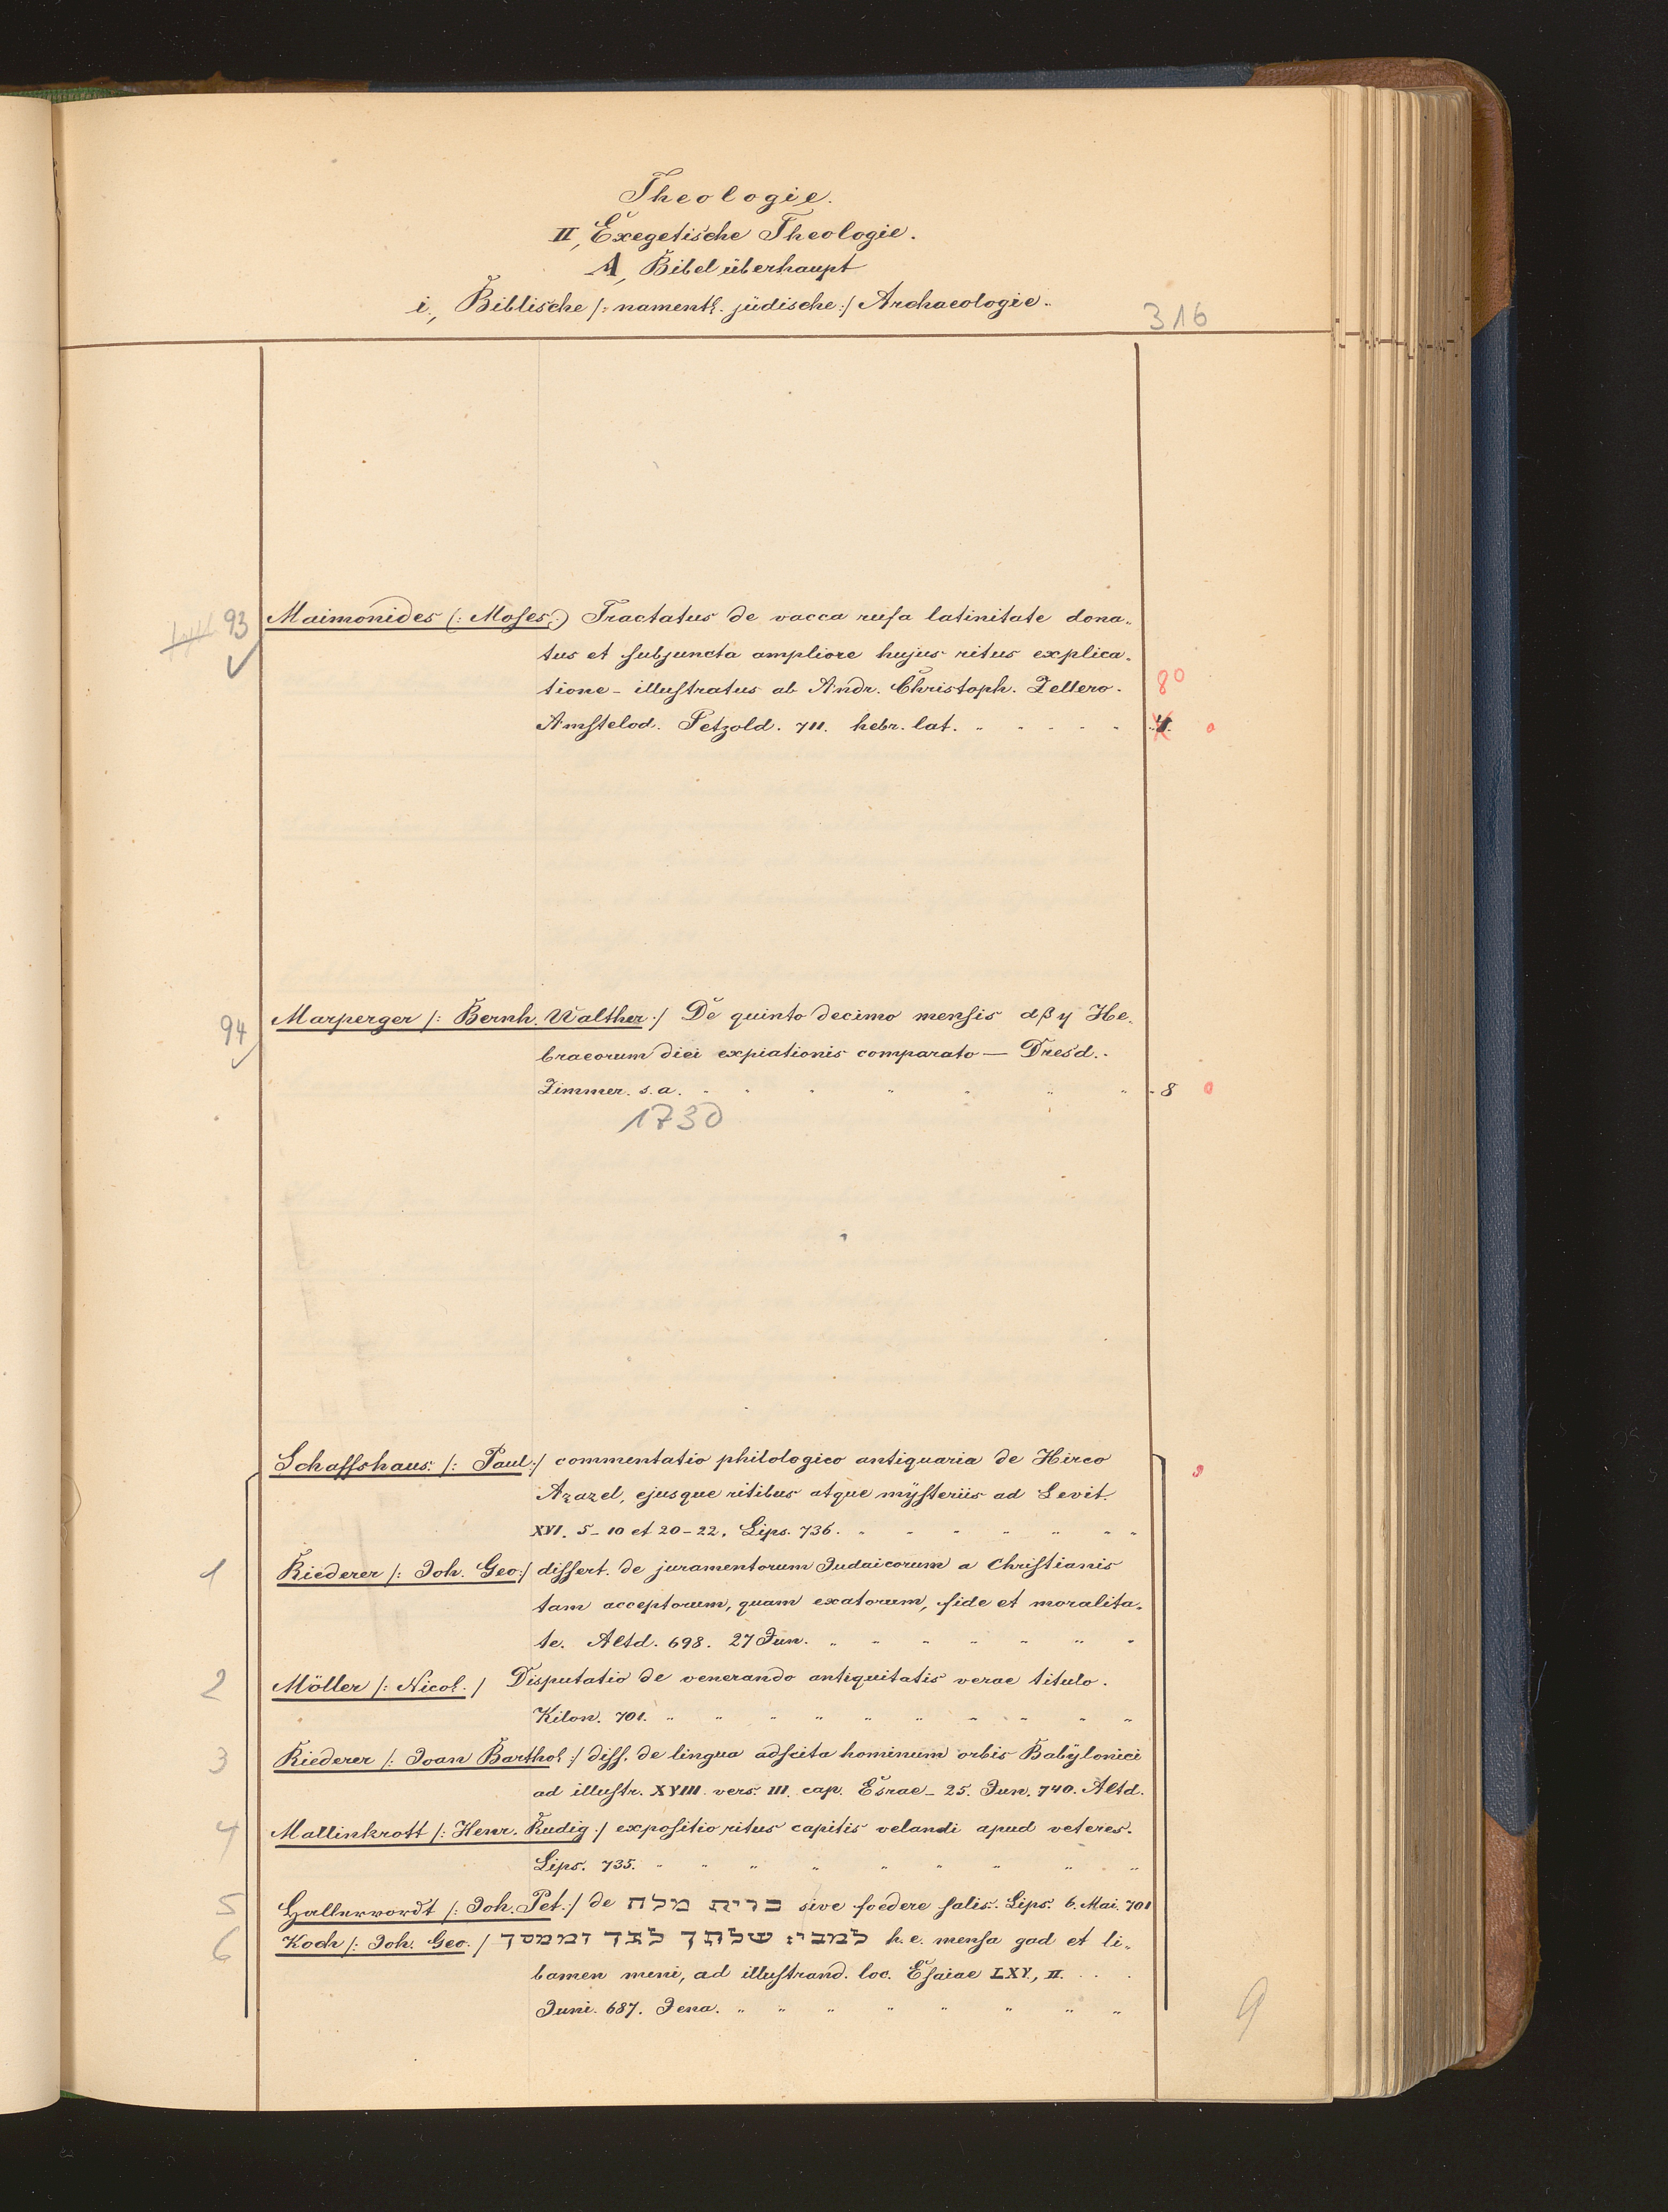 Theologie.
II, Exegetische Theologie.
A, Bibel überhaupt
i., Biblische /: namentl. jüdische :/ Archaeologie.
316
93 Maimonides (: Moses :) Tractatus de vacca rufa latinitate dona-
tus et subjuncta ampliore hujus ritus explica-
tione - illustratus ab Andr. Christoph. Zellero. 8°
Amstelod. Petzold. 711. hebr. lat.
94 Marperger /: Bernh. Walther :/ De quinto decimo mensis αβγ He-
braeorum diei expiationis comparato — Dresd.
Zimmer. s. a. 8
1730
Schaffshaus. /: Paul :/ commentatio philologico antiquaria de Hirco
Azazel, ejusque ritibus atque mÿsteriis ad Levit.
XVI. 5-10 et 20-22. Lips. 736.
1 Riederer /: Joh. Geo :/ dissert. de juramentorum Judaicorum a Christianis
tam acceptorum, quam exatorum, fide et moralita-
te. Altd. 698. 27 Jun.
2 Möller /: Nicol. / Disputatio de venerando antiquitatis verae titulo.
Kilon. 701.
3 Riederer /: Joan Barthol :/ diss. de lingua adscita hominum orbis Babÿlonici
ad illustr. XVIII. vers. III. cap. Esrae - 25. Jun. 740. Altd.
4 Mallinkrott /: Henr. Rudig :/ expositio ritus capitis velandi apud veteres.
Lips. 735.
5 Hallervordt /: Joh. Pet. :/ de ברית מלח sive foedere salis. Lips. 6. Mai. 701
6 Koch /: Joh. Geo. / שלחן לגד וממסך h. e. mensa gad et li-
bamen meni, ad illustrand. loc. Esaiae LXV, II.
Juni. 687. Jena.
9